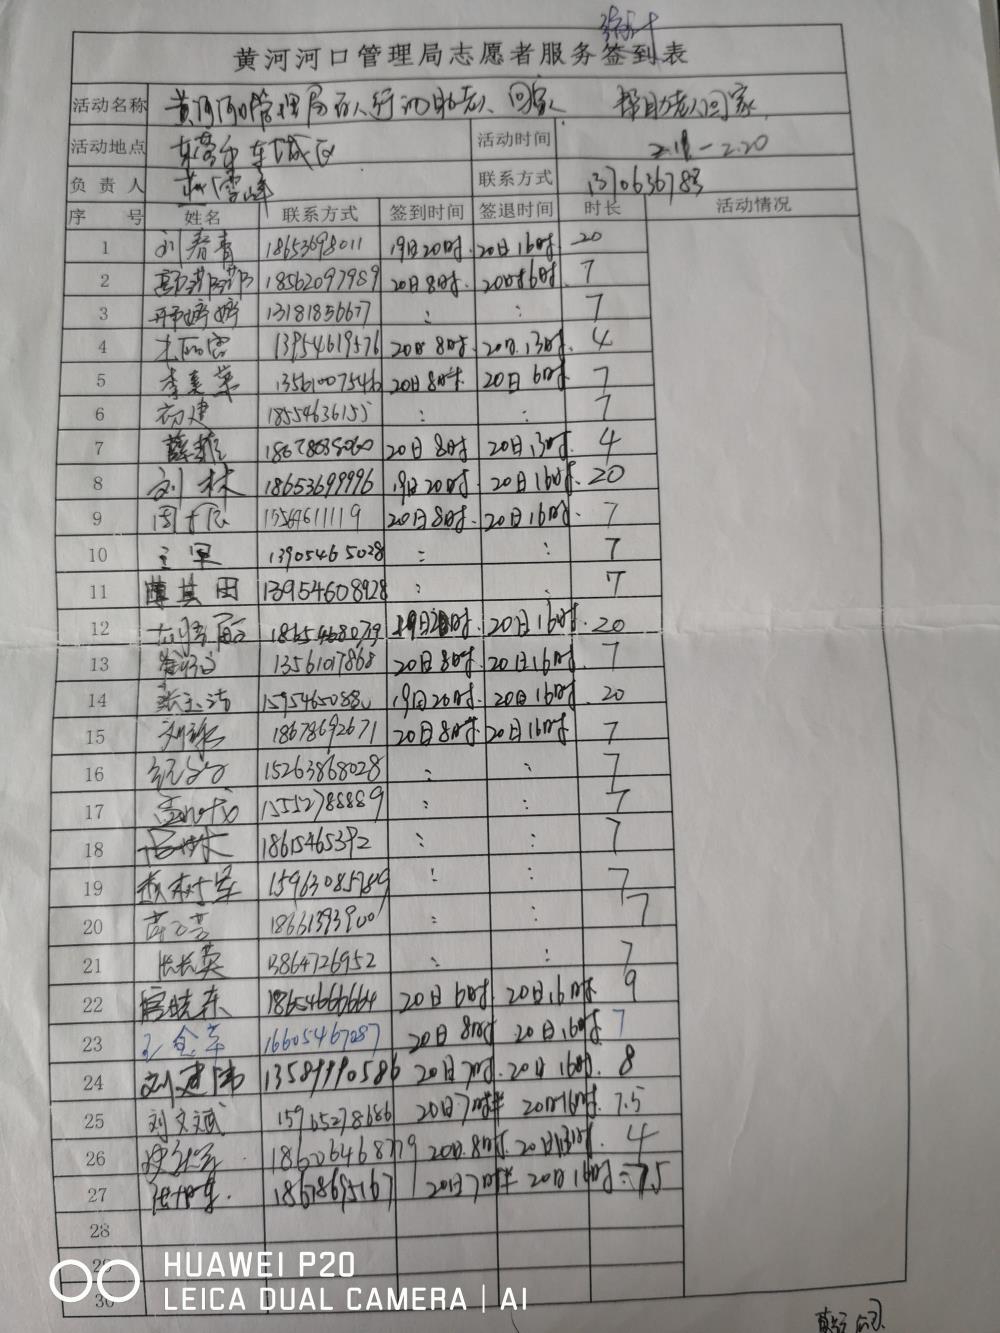 黄河河口管理局志愿者服务签到表
活动名称 黄河河口管理局百人行动助老人回家 帮助老人回家
活动地点 东营市东城区 活动时间 2.19-2.20
负责人 联系方式 1370636783
序号 姓名 联系方式 签到时间 签退时间 时长 活动情况
1 刘春青 18653698011 19日20时 20日16时 20
2 18562097989 20日8时 20日16时 7
3 13181856677 : : 7
4 13954619576 20日8时 20日13时 4
5 李美荣 13561007546 20日8时 20日6时 7
6 初建 18554636155 : : 7
7 20日8时 20日13时 4
8 刘林 18653699996 19日20时 20日16时 20
9 15564611119 20日8时 20日16时 7
10 王军 13905465028 : : 7
11 薄其田 13954608928 : : 7
12 18654468079 20日16时 20
13 13561017868 20日8时 20日16时 7
14 张玉洁 15954650888 19日20时 20日16时 20
15 18678692671 20日8时 20日16时 7
16 15263868028 : : 7
17 15552788889 : : 7
18 18615465392 : : 7
19 15963085789 : : 7
20 18661393900 : : 7
21 张长英 13864726952 : : 7
22 宫晓东 18654666664 20日6时 20日16时 9
23 16605467087 20日8时 20日16时 7
24 刘建伟 13589990586 20日7时 20日16时 8
25 刘文斌 15965278686 20日7时半 20日16时 7.5
26 18606468779 20日8时 20日13时 4
27 18678695167 20日7时半 20日16时 7.5
28
29
30
HUAWEI P20
LEICA DUAL CAMERA | AI